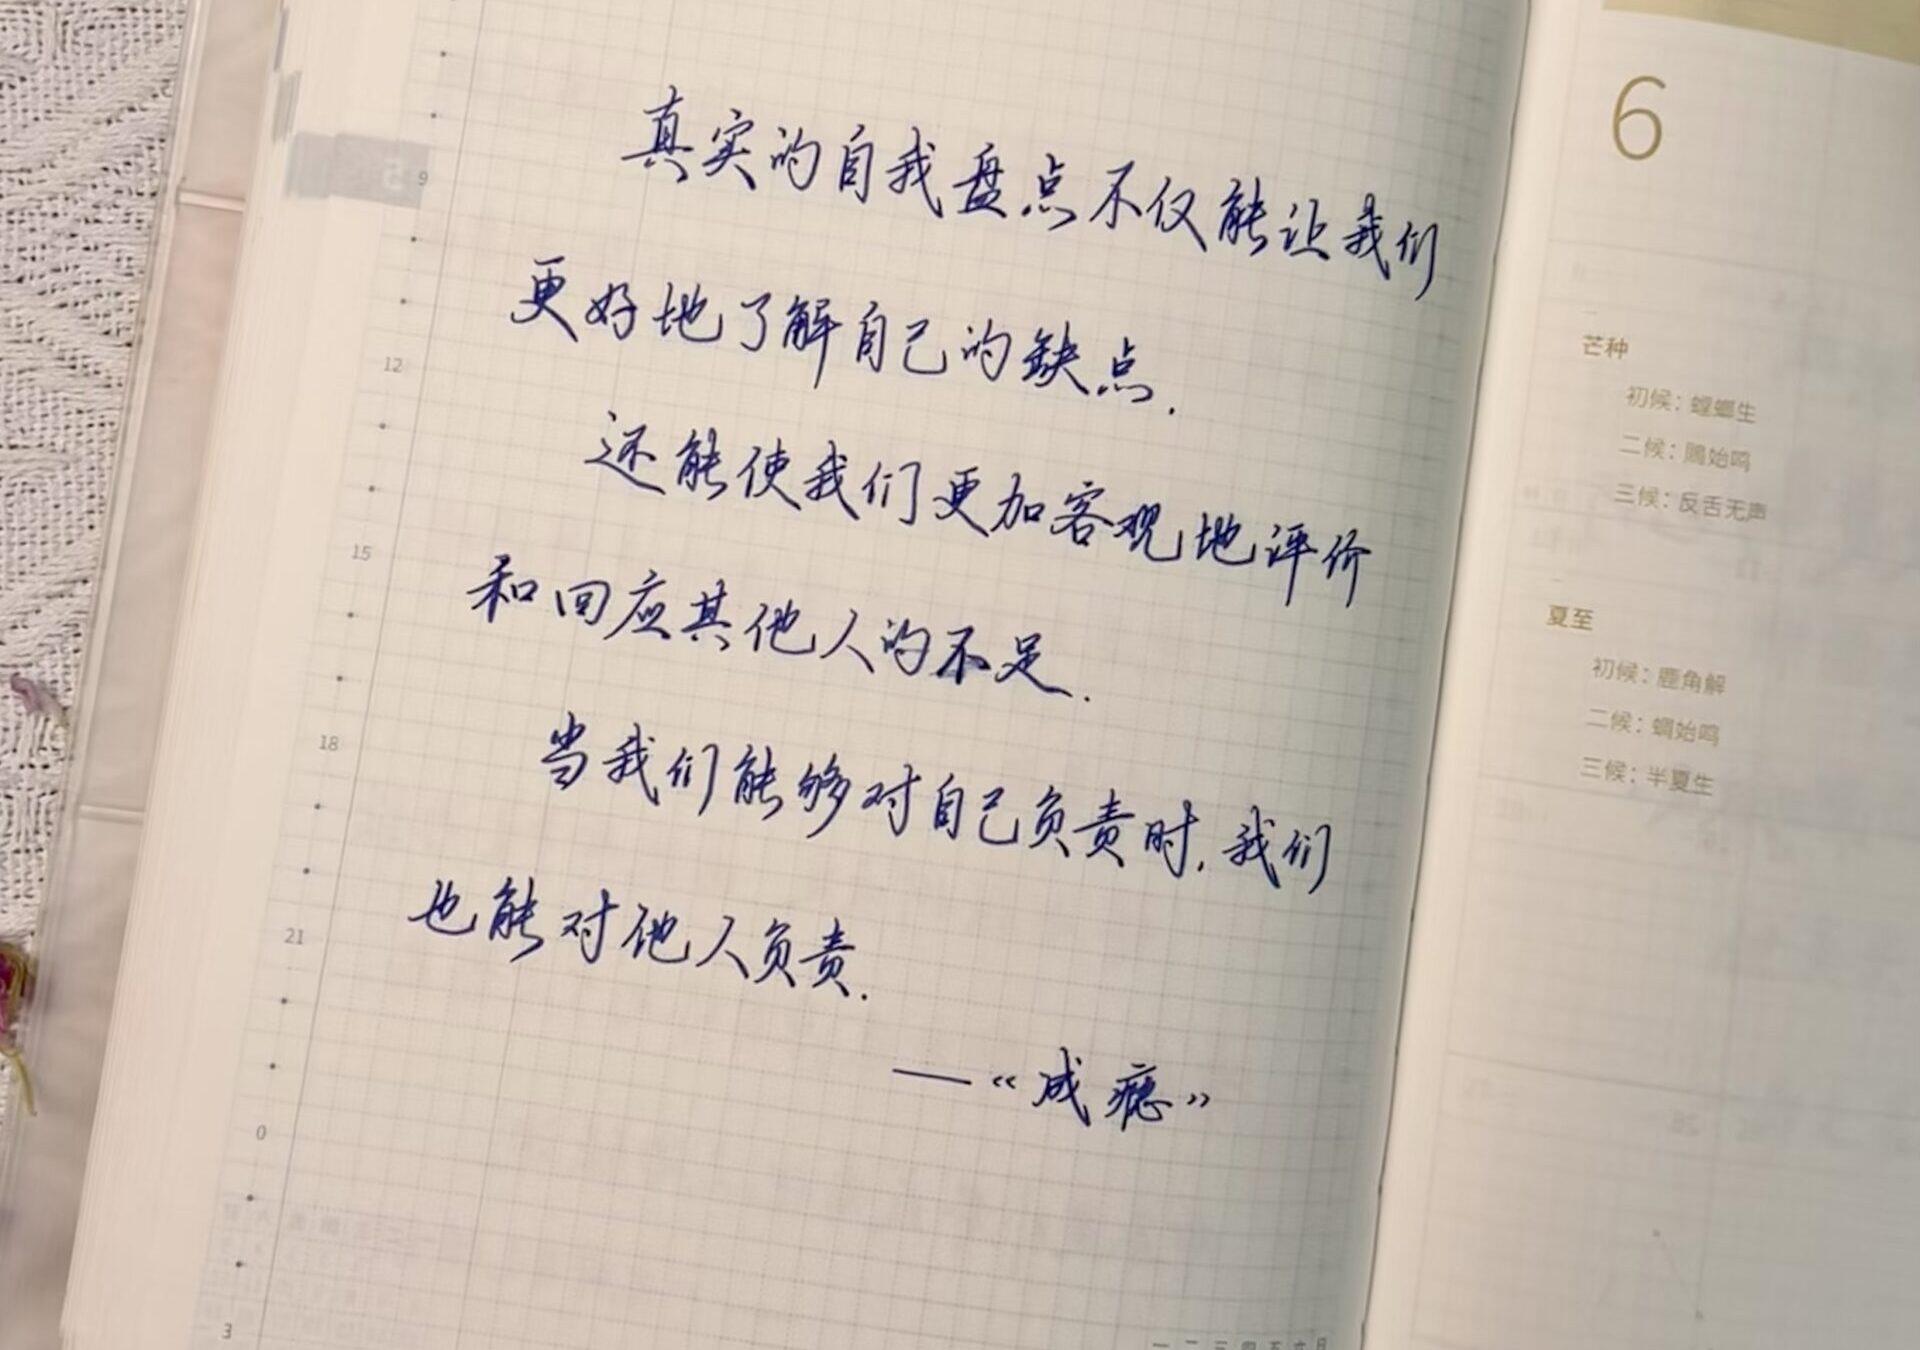 真实的自我盘点不仅能让我们
更好地了解自己的缺点.
还能使我们更加客观地评价
和回应其他人的不足.
当我们能够对自己负责时,我们
也能对他人负责.
—“成瘾”
9
12
15
18
21
0
3
一二三四五六日
6
芒种
初候：螳螂生
二候：鵙始鸣
三候：反舌无声
夏至
初候：鹿角解
二候：蜩始鸣
三候：半夏生